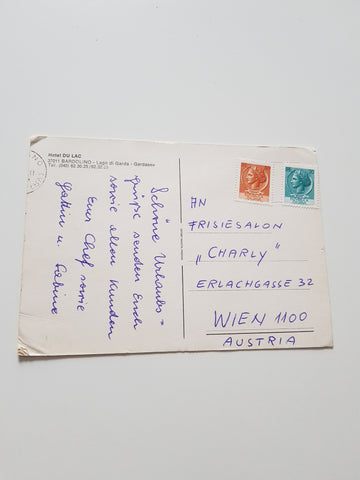 Hotel DU LAC
37011 BARDOLINO - Lago di Garda - Gardasee
Schöne Urlaubs=
grüße senden Euch
sowie allen Kunden
Euer Chef sowie
Gattin u. Sabine
AN
FRISIESALON
„CHARLY"
ERLACHGASSE 32
WIEN 1100
AUSTRIA